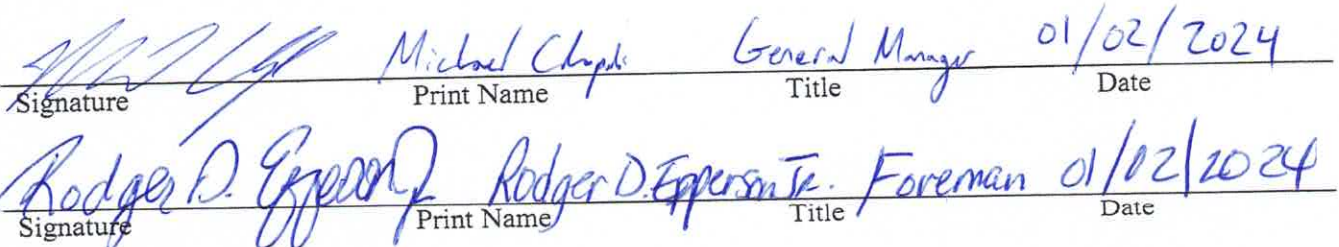 Michael General Manager 01/02/2024
Signature Print Name Title Date
Rodger D. Epperson Jr. Rodger D. Epperson Jr. Foreman 01/02/2024
Signature Print Name Title Date